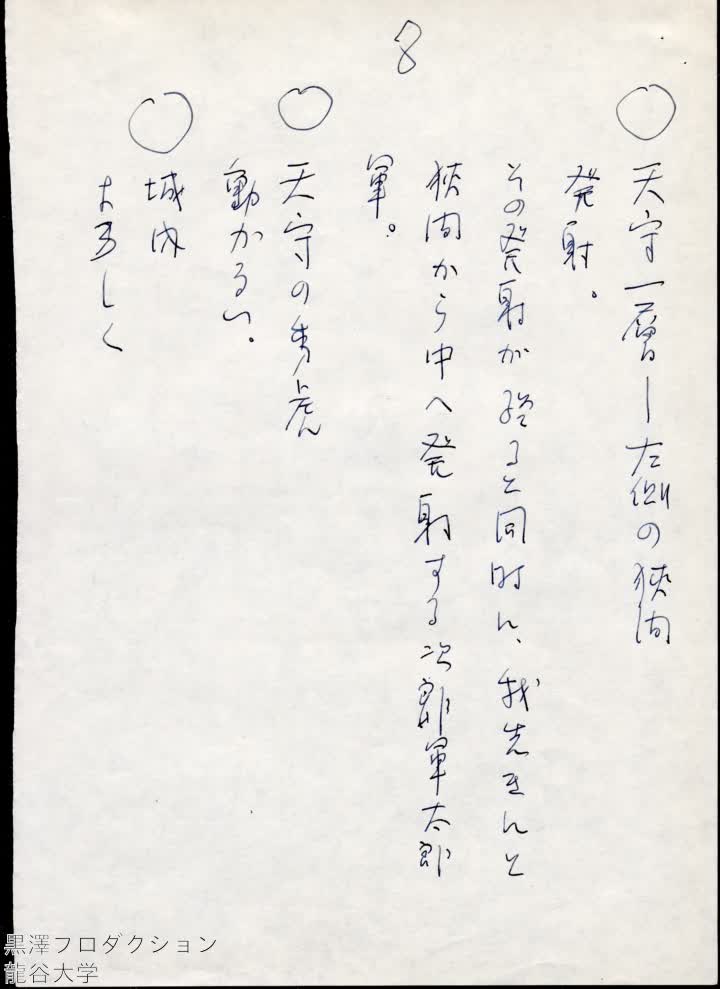 8
○ 天守一層―左側の狭間
発射。
その発射が終ると同時に、我先きにと
狭間から中へ発射する次郎軍太郎
軍。
○ 天守の秀虎
動かない。
○ 城内
おろしく
黒澤プロダクション
龍谷大学